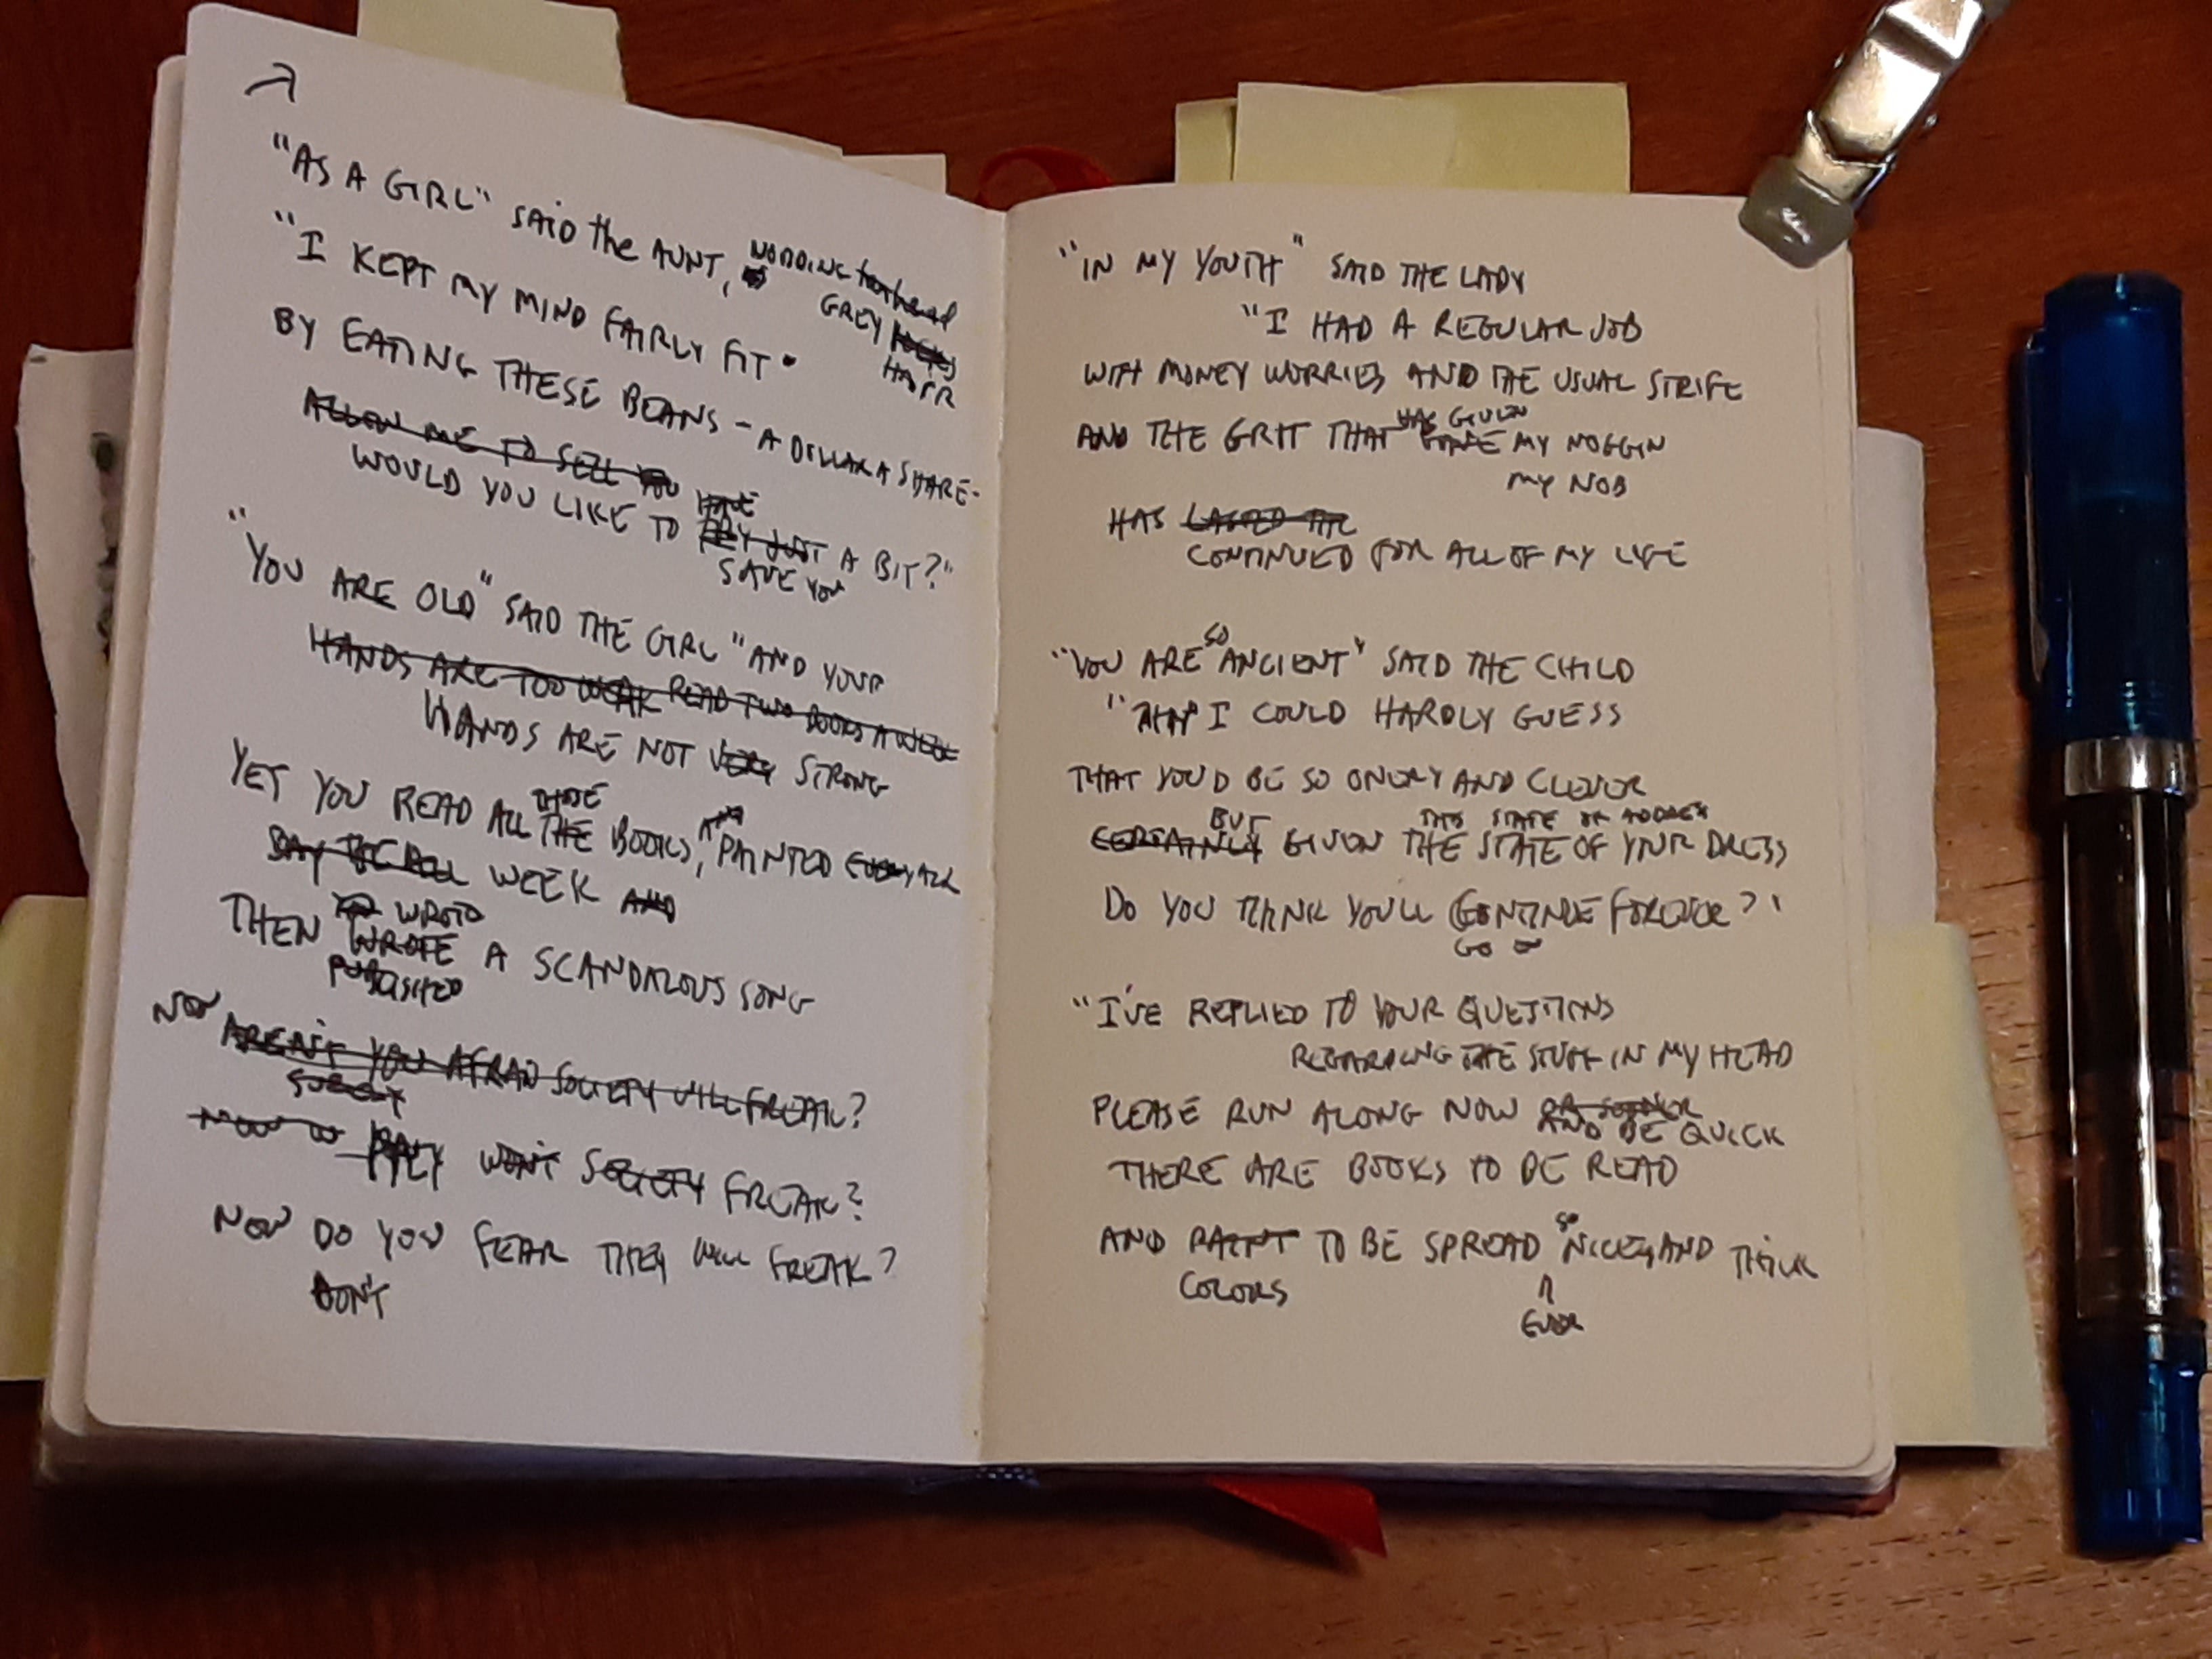 "AS A GIRL" SAID the AUNT, NODDING
GREY
HAIR
"I KEPT MY MIND FAIRLY FIT.
BY EATING THESE BEANS - A DOLLAR A SHARE -
ALLOW ME TO SELL YOU
HAVE
WOULD YOU LIKE TO BUY JUST A BIT?"
SAVE YOU
"YOU ARE OLD" SAID THE GIRL "AND YOUR
HANDS ARE TOO WEAK READ TWO BOOKS A WEEK
HANDS ARE NOT VERY STRONG
THOSE
YET YOU READ ALL THE BOOKS, PAINTED EVERY ALL
DAY WEEK AND
WROTE
THEN WROTE A SCANDALOUS SONG
PUBLISHED
NOW AREN'T YOU AFRAID SOCIETY WILL FREAK?
WON'T SOCIETY FREAK?
NOW DO YOU FEAR THEY WILL FREAK?
DON'T
"IN MY YOUTH" SAID THE LADY
"I HAD A REGULAR JOB
WITH MONEY WORRIES AND THE USUAL STRIFE
HAS GIVEN
AND THE GRIT THAT GAVE MY NOGGIN
MY NOB
HAS LASTED THE
CONTINUED FOR ALL OF MY LIFE
SO
"YOU ARE ANCIENT" SAID THE CHILD
"THAT I COULD HARDLY GUESS
THAT YOU'D BE SO ONERY AND CLEVER
BUT THIS STATE OF
CERTAINLY GIVEN THE STATE OF YOUR DRESS
DO YOU THINK YOU'LL CONTINUE FOREVER?"
GO ON
"I'VE REPLIED TO YOUR QUESTIONS
REGARDING THE STUFF IN MY HEAD
PLEASE RUN ALONG NOW OR SOONER
AND BE QUICK
THERE ARE BOOKS TO BE READ
SO
AND PAINT TO BE SPREAD NICELY AND THICK
COLORS
EVER